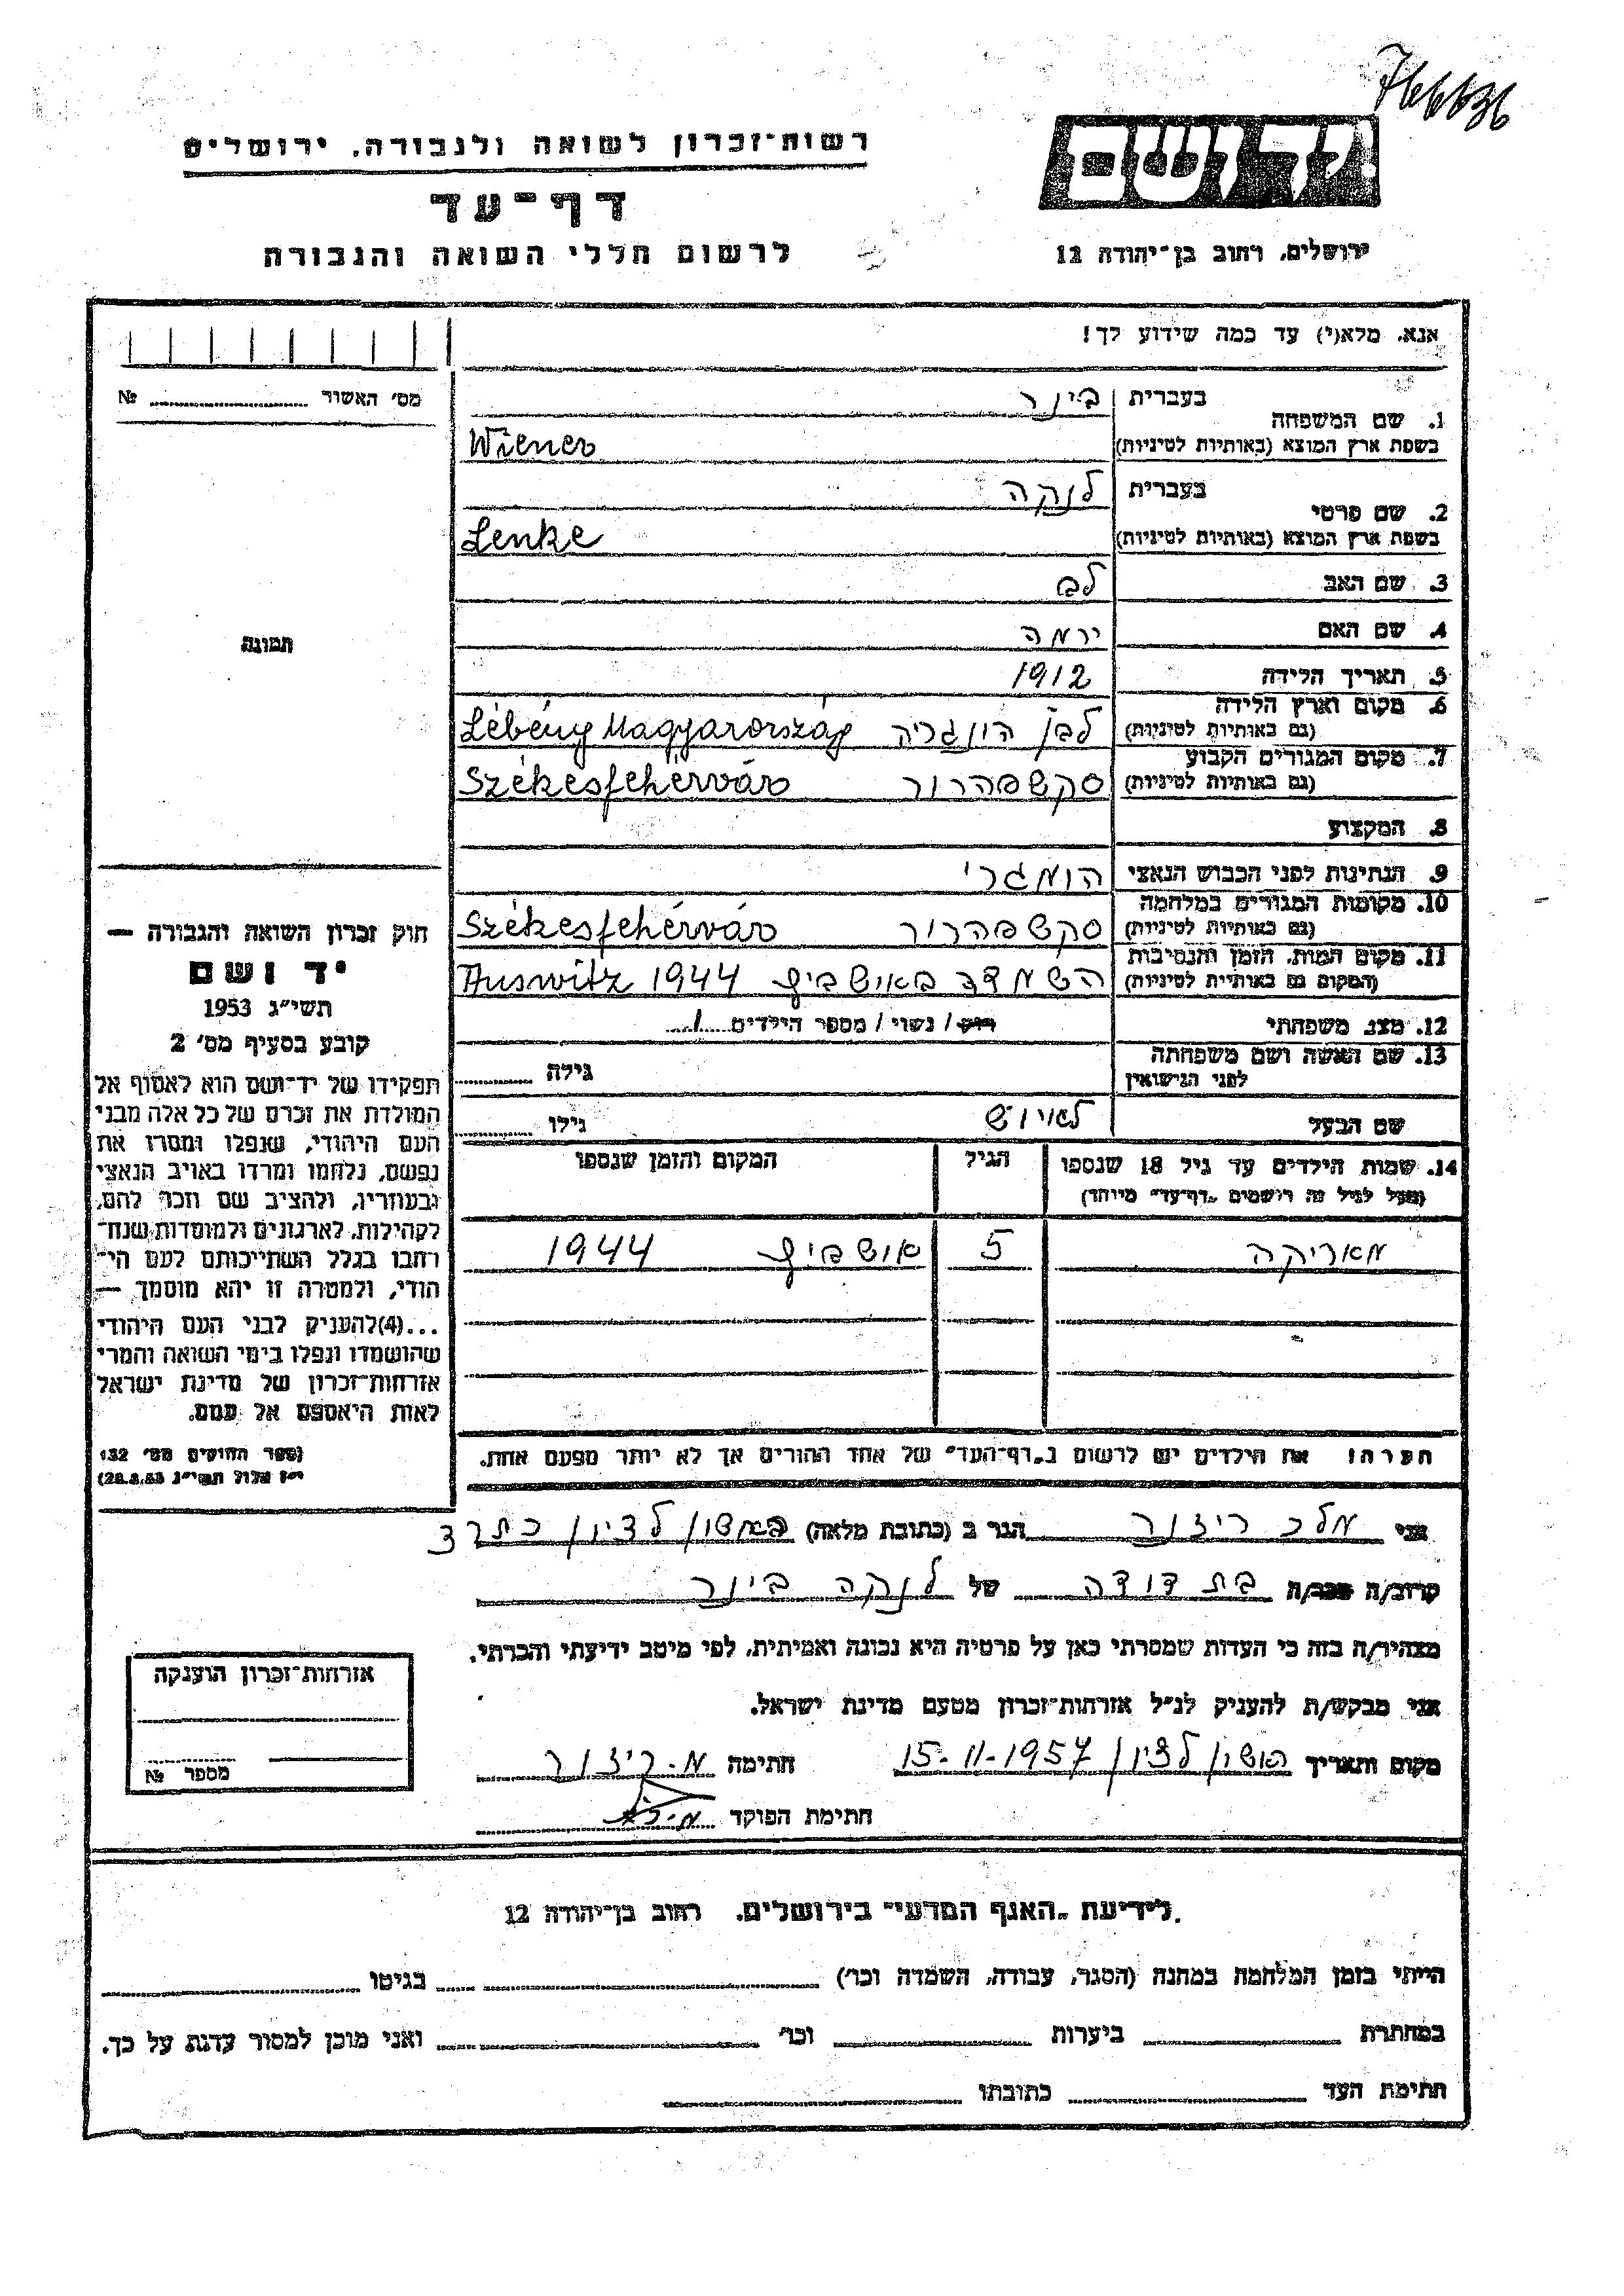 רשות־זכרון לשואה ולגבורה, ירושלים
דף־עד
לרשום חללי השואה והגבורה
ידושם
ירושלים, רחוב בן־יהודה 12
אנא, מלא(י) עד כמה שידוע לך!
מס׳ האשור № ........
1. שם המשפחה בעברית וינר
בשפת ארץ המוצא (באותיות לטיניות) Wiener
2. שם פרטי בעברית לנקה
בשפת ארץ המוצא (באותיות לטיניות) Lenke
3. שם האב לב
4. שם האם ירמה
5. תאריך הלידה 1912
6. מקום וארץ הלידה
(גם באותיות לטיניות) לבן הונגריה Lébény Magyarország
7. מקום המגורים הקבוע
(גם באותיות לטיניות) סקשפהרור Székesfehérvár
8. המקצוע
9. הנתינות לפני הכבוש הנאצי הומגרי
10. מקומות המגורים במלחמה
(גם באותיות לטיניות) סקשפהרור Székesfehérvár
11. מקום המות, הזמן והנסיבות
(המקום גם באותיות לטיניות) השמדה באושביץ 1944 Auswitz
12. מצב משפחתי רווק / נשוי / מספר הילדים 1
13. שם האשה ושם משפחתה
לפני הנישואין גילה
שם הבעל לאיוש גילו
14. שמות הילדים עד גיל 18 שנספו הגיל המקום והזמן שנספו
(מעל לגיל זה רושמים „דף־עד״ מיוחד)
מאריקה 5 אושביץ 1944
הערה: את הילדים יש לרשום ב„דף־העד״ של אחד ההורים אך לא יותר מפעם אחת.
תמונה
חוק זכרון השואה והגבורה —
יד ושם
תשי״ג 1953
קובע בסעיף מס׳ 2
תפקידו של יד־ושם הוא לאסוף אל
המולדת את זכרם של כל אלה מבני
העם היהודי, שנפלו ומסרו את
נפשם, נלחמו ומרדו באויב הנאצי
ובעוזריו, ולהציב שם וזכר להם,
לקהילות, לארגונים ולמוסדות שנח־
רבו בגלל השתייכותם לעם הי־
הודי, ולמטרה זו יהא מוסמך —
...(4)להעניק לבני העם היהודי
שהושמדו ונפלו בימי השואה והמרי
אזרחות־זכרון של מדינת ישראל
לאות היאספם אל עמם.
(ספר החוקים מס׳ 132,
י״ז אלול תשי״ג 28.8.53)
אני מלכ ריזנר הגר ב (כתובת מלאה) ראשון לציון כתר 3
קרוב/ה מכר/ה בת דודה של לנקה וינר
מצהיר/ה בזה כי העדות שמסרתי כאן על פרטיה היא נכונה ואמיתית, לפי מיטב ידיעתי והכרתי.
אני מבקש/ת להעניק לנ״ל אזרחות־זכרון מטעם מדינת ישראל.
מקום ותאריך ראשון לציון 15-11-1957 חתימה מ. ריזנר
חתימת הפוקד
אזרחות־זכרון הוענקה
מספר №
לידיעת „האגף המדעי״ בירושלים, רחוב בן־יהודה 12
הייתי בזמן המלחמה במחנה (הסגר, עבודה, השמדה וכר׳) בגיטו
במחתרת ביערות וכר׳ ואני מוכן למסור עדות על כך.
חתימת העד כתובתו